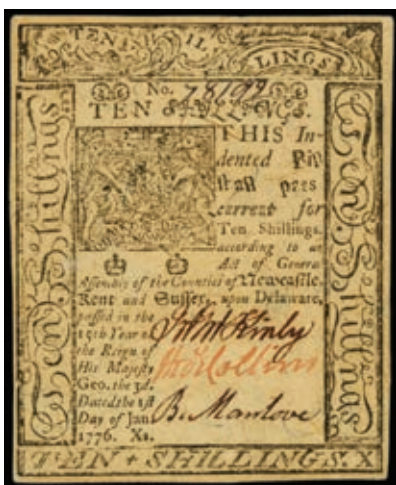 TEN SHILLINGS
No. 78199
TEN SHILLINGS.
THIS In-
dented Bill
shall pass
current for
Ten Shillings,
according to an
Act of General
Assembly of the Counties of Newcastle,
Kent and Sussex, upon Delaware,
passed in the
15th Year of
the Reign of
His Majesty
Geo. the 3d.
Dated the 1st
Day of Jan.
1776. Xs.
Jno McKinly
Collins
B. Manlove
Ten Shillings
Ten Shillings
TEN + SHILLINGS. X